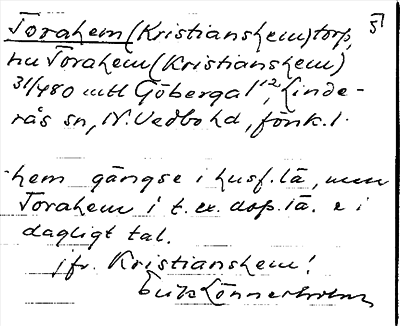 Torahem (Kristianshem) torp, 51
nu Torahem (Kristianshem)
31/480 mtl Göberga 1¹², Linde-
rås sn, N. Vedbo hd, Jönk. l.
-hem gängse i husf. lä, men
Torahem i t. ex. dop. lä. o i
dagligt tal.
jfr. Kristianshem!
Erik Lönnerholm